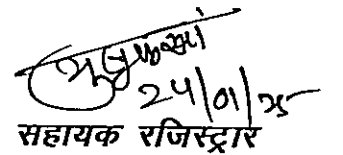 24/01/25
सहायक रजिस्ट्रार